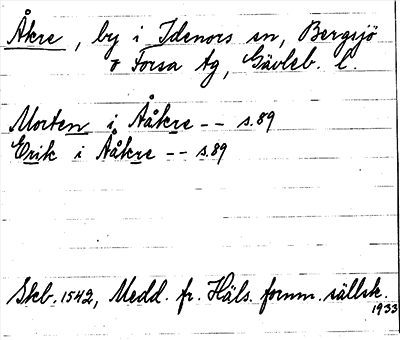 Åkre, by i Idenors sn, Bergsjö
o Forsa tg, Gävleb. l.
Morten i Ååkre -- s.89
Erik i Ååkre -- s.89
Skb. 1542, Medd. fr. Häls. fornm. sällsk.
1933